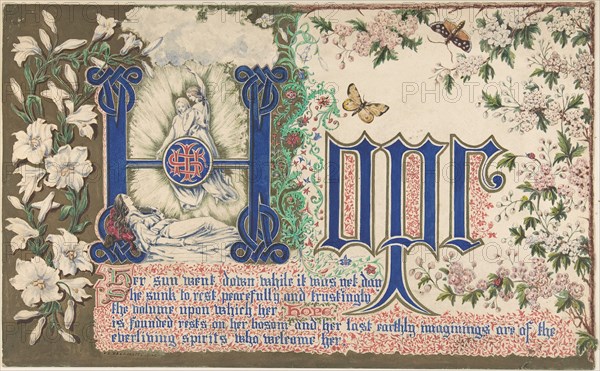 Hope
Her sun went down while it was yet day
She sunk to rest peacefully and trustingly
the volume upon which her hope
is founded rests on her bosom and her last earthly imaginings are of the
everliving spirits who welcome her